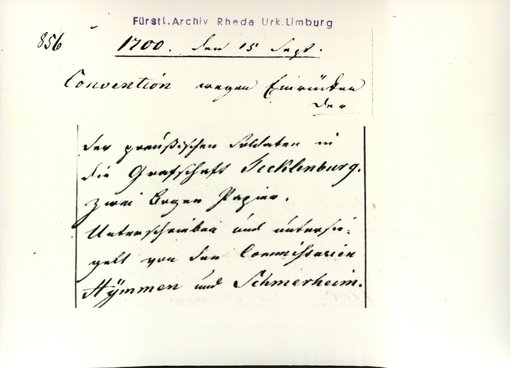 Fürstl. Archiv Rheda Urk. Limburg
856
1700. den 15 Sept.
Convention wegen Einrücken
der
der preußischen Soldaten in
die Grafschaft Tecklenburg.
zwei Bogen Papier.
Unterschrieben und untersie-
gelt von den Commissarien
Hÿmmen und Schmerheim.